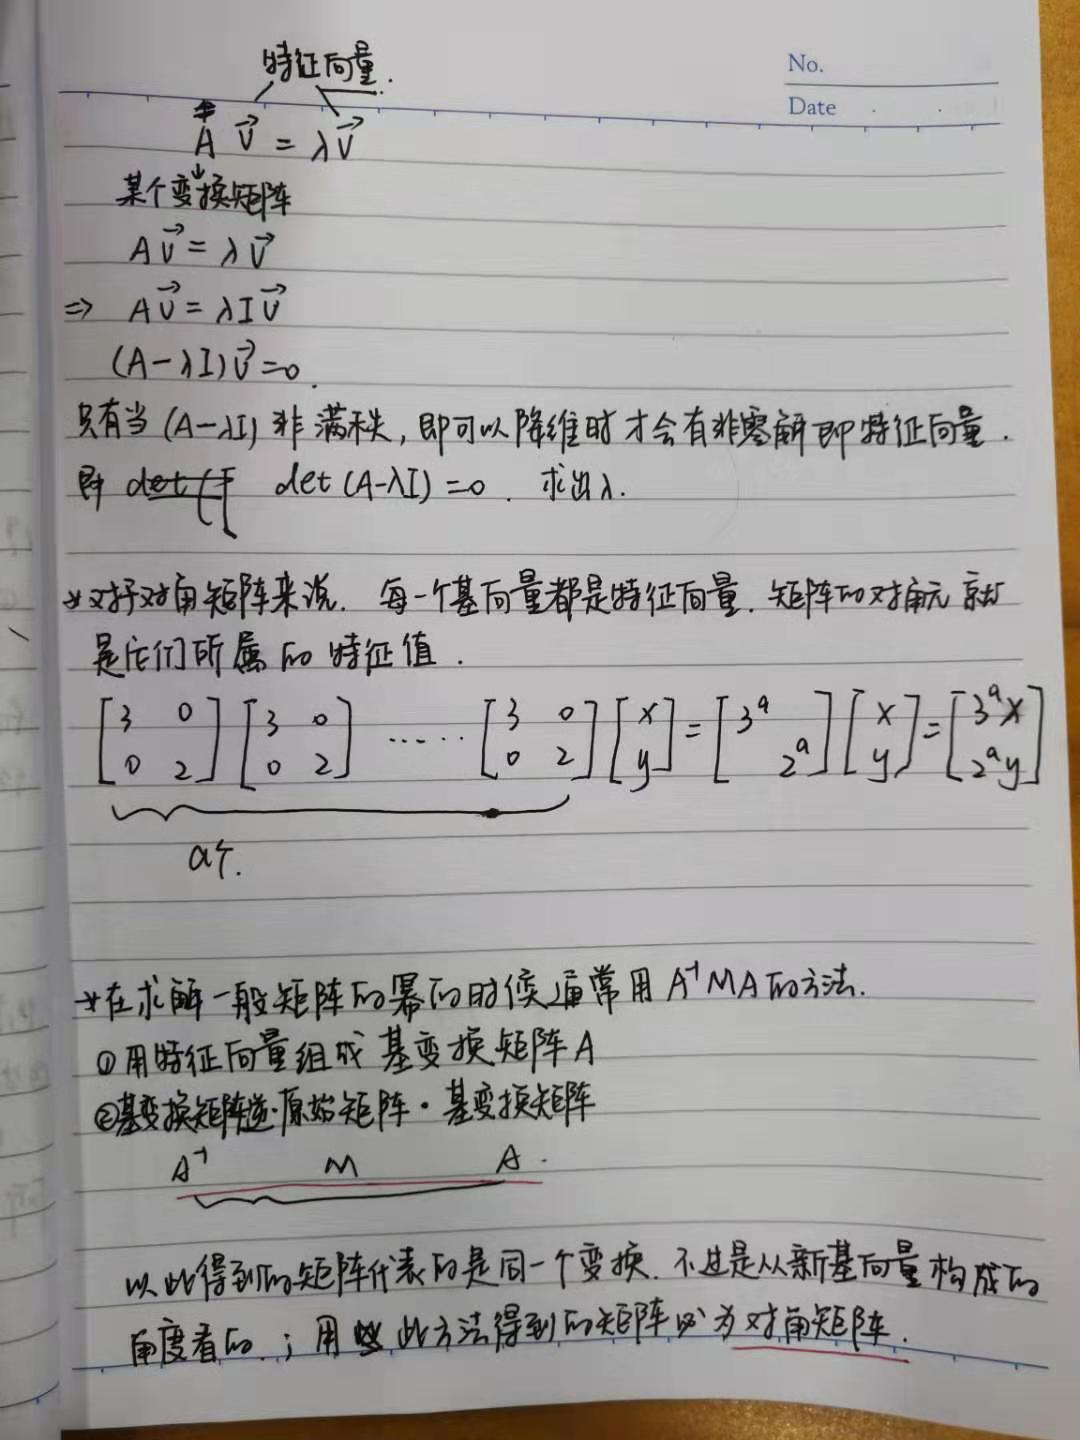 No.
Date
特征向量.
A v⃗ = λv⃗
某个变换矩阵
Av⃗ = λv⃗
⇒ Av⃗ = λIv⃗
(A-λI)v⃗=0.
只有当(A-λI)非满秩,即可以降维时才会有非零解即特征向量.
即 det( det(A-λI)=0. 求出λ.
→对于对角矩阵来说. 每一个基向量都是特征向量. 矩阵的对角元就
是它们所属的特征值.
[3 0; 0 2] [3 0; 0 2] ...... [3 0; 0 2] [x; y] = [3^a; 2^a] [x; y] = [3^a x; 2^a y]
a个.
→在求解一般矩阵的幂的时候通常用A⁻¹MA的方法.
①用特征向量组成基变换矩阵A
②基变换矩阵逆·原始矩阵·基变换矩阵
A⁻¹ M A.
以此得到的矩阵代表的是同一个变换.不过是从新基向量构成的
角度看的.;用此方法得到的矩阵必为对角矩阵.